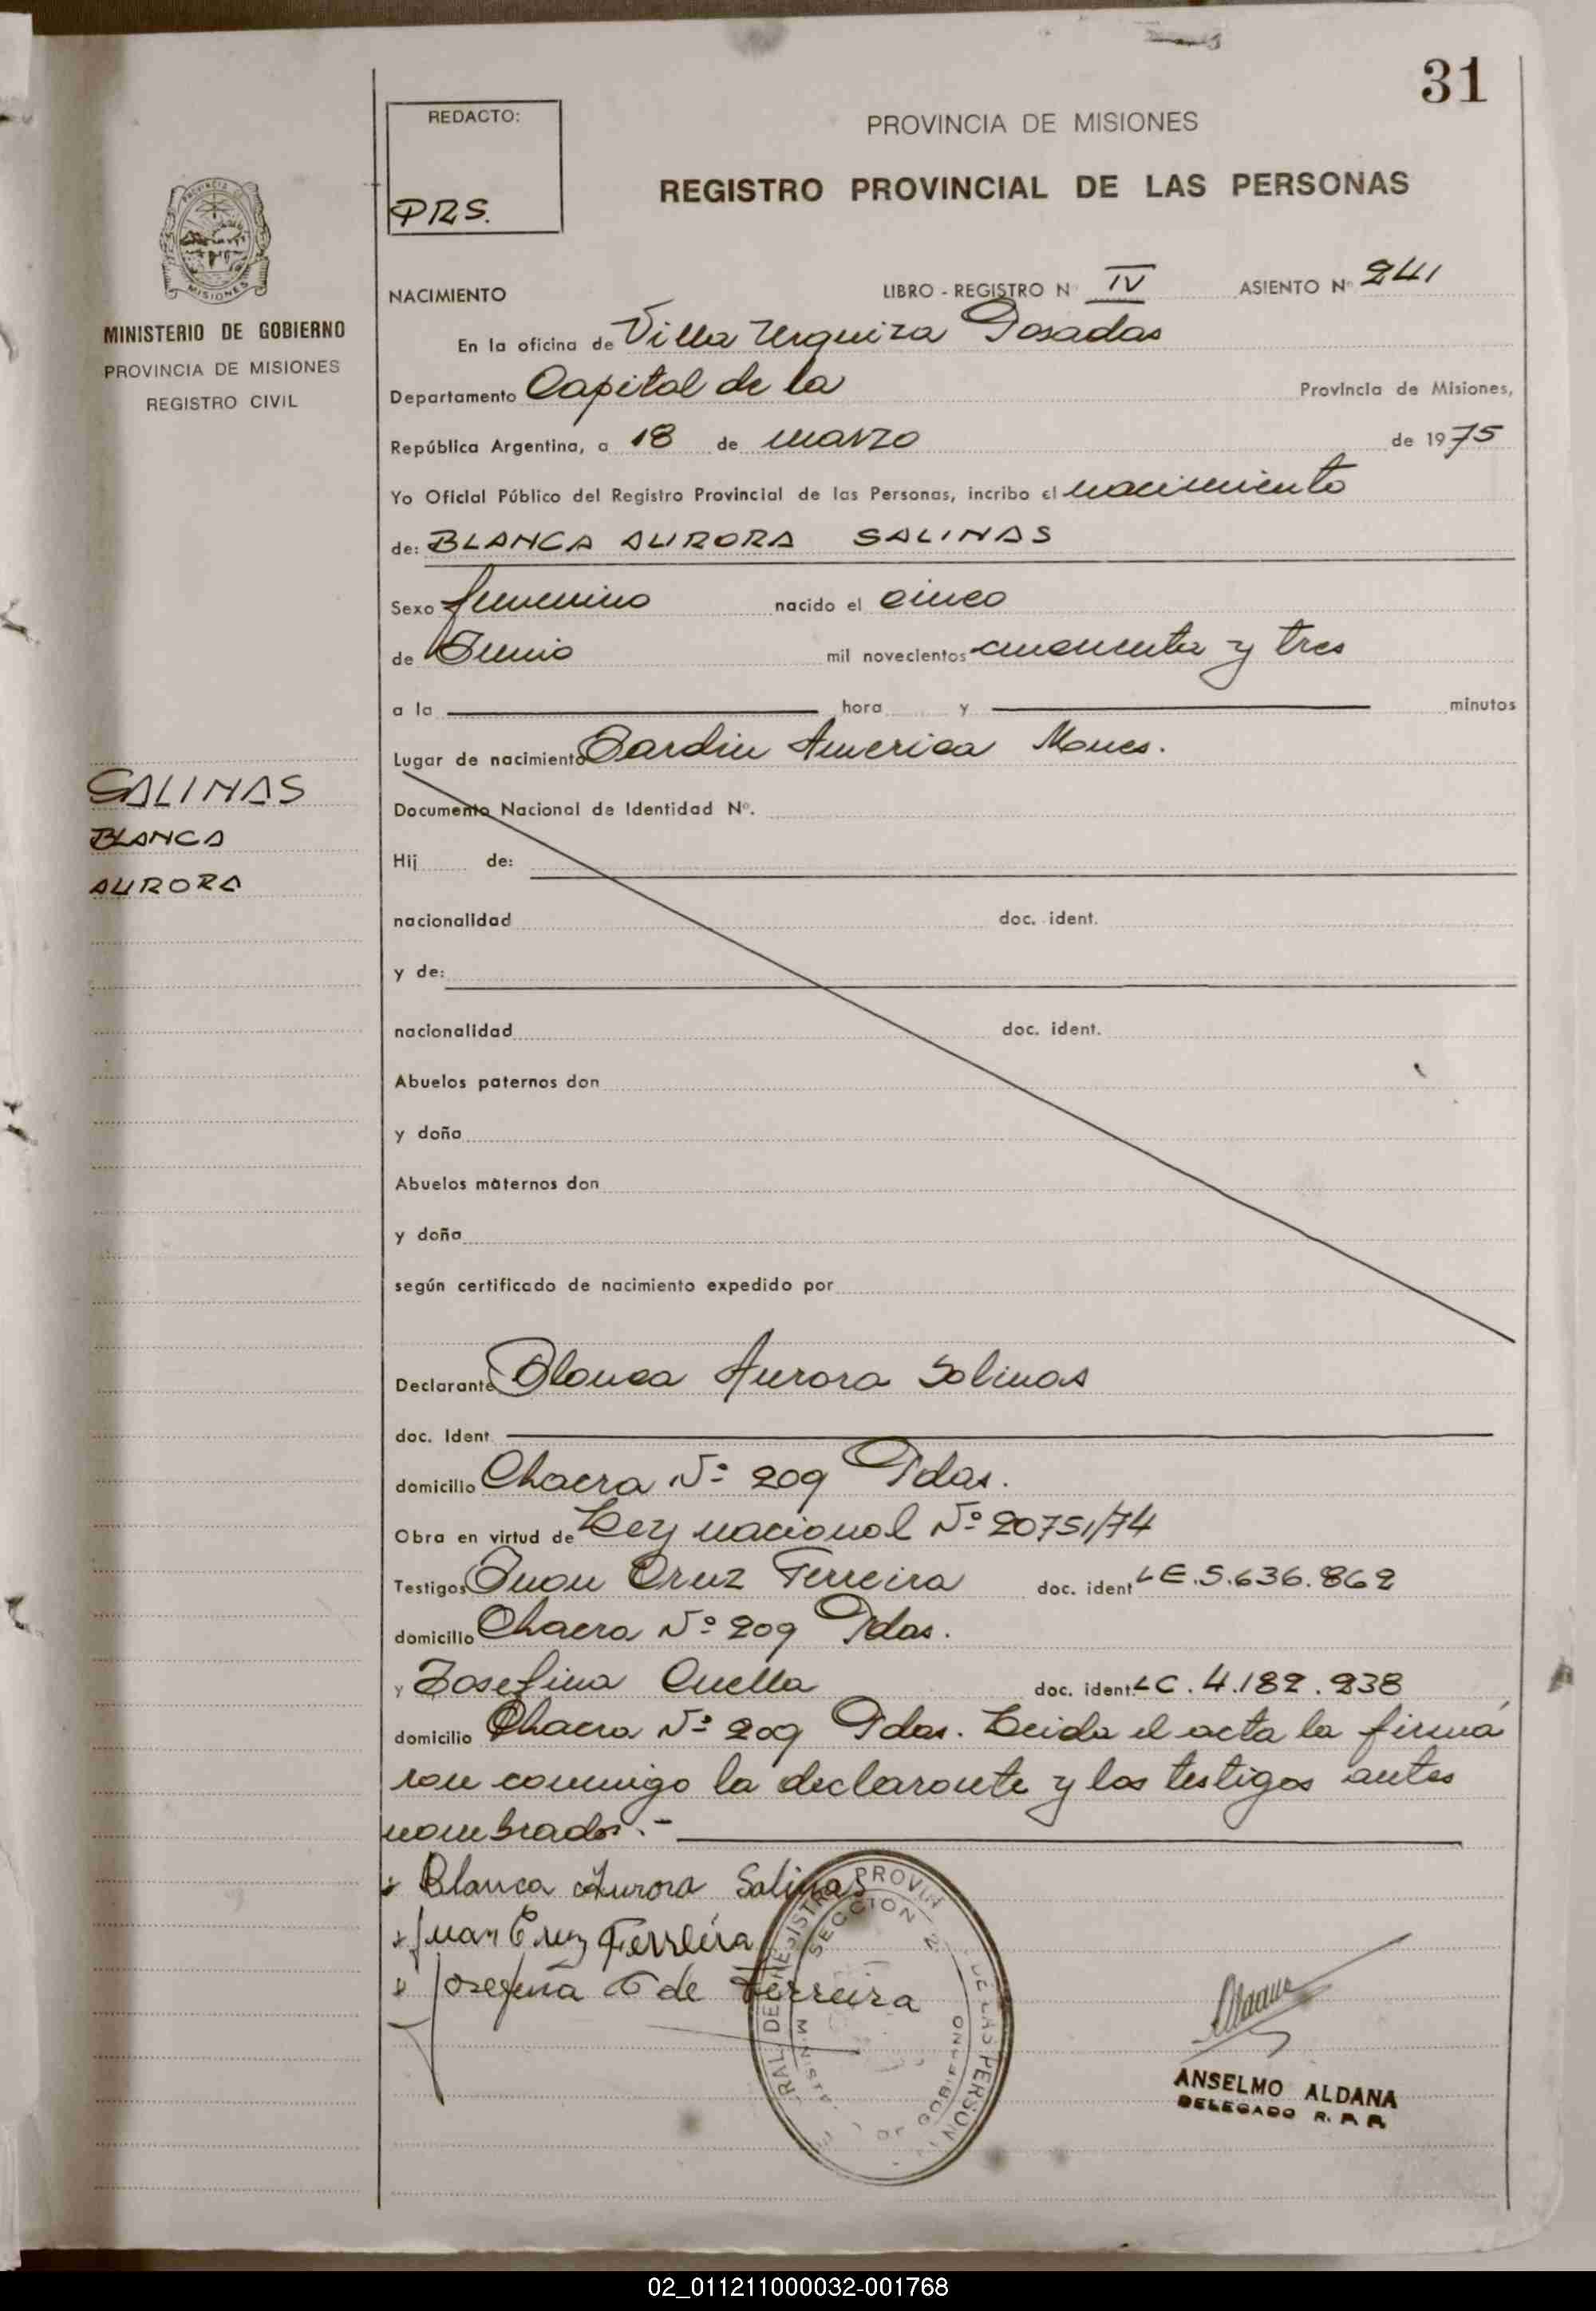 31
REDACTO:
PRS.
PROVINCIA DE MISIONES
REGISTRO PROVINCIAL DE LAS PERSONAS
MISIONES
MINISTERIO DE GOBIERNO
PROVINCIA DE MISIONES
REGISTRO CIVIL
NACIMIENTO LIBRO - REGISTRO Nº IV ASIENTO Nº 241
En la oficina de Villa Urquiza Posadas
Departamento Capital de la Provincia de Misiones,
República Argentina, a 18 de marzo de 1975
Yo Oficial Público del Registro Provincial de las Personas, incribo el nacimiento
de: BLANCA AURORA SALINAS
Sexo femenino nacido el cinco
de Junio mil novecientos cincuenta y tres
a la hora y minutos
Lugar de nacimiento Jardin America Mnes.
SALINAS
BLANCA
AURORA
Documento Nacional de Identidad Nº.
Hij de:
nacionalidad doc. ident.
y de:
nacionalidad doc. ident.
Abuelos paternos don
y doña
Abuelos maternos don
y doña
según certificado de nacimiento expedido por
Declarante Blanca Aurora Salinas
doc. Ident
domicilio Chacra Nº 209 Pdas.
Obra en virtud de Ley nacional Nº 20751/74
Testigos Juan Cruz Ferreira doc. ident LE.5.636.862
domicilio Chacra Nº 209 Pdas.
y Josefina Cuella doc. ident. LC.4.182.238
domicilio Chacra Nº 209 Pdas. Leida el acta la firmá
ron conmigo la declarante y los testigos antes
nombrados.-
Blanca Aurora Salinas
Juan Cruz Ferreira
Josefina C de Ferreira
SECCION 2
ANSELMO ALDANA
DELEGADO R. P. P.
02_011211000032-001768